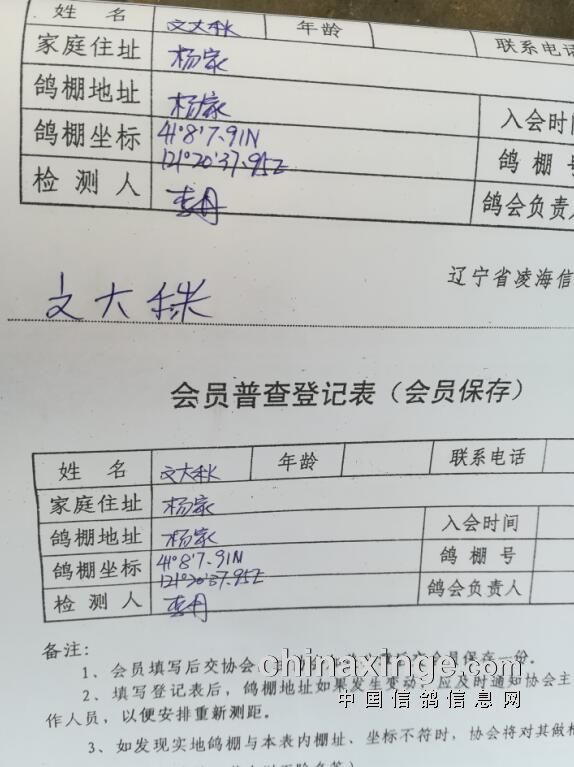 姓 名 文大秋 年龄 联系电话
家庭住址 杨家
鸽棚地址 杨家 入会时间
鸽棚坐标 41°8'7.91N 鸽 棚 号
121°20'37.95E
检 测 人 鸽会负责人
辽宁省凌海信
文大秋
会员普查登记表（会员保存）
姓 名 文大秋 年龄 联系电话
家庭住址 杨家
鸽棚地址 杨家 入会时间
鸽棚坐标 41°8'7.91N 鸽 棚 号
121°20'37.95E
检 测 人 鸽会负责人
备注：
1、会员填写后交协会 会员保存一份.
2、填写登记表后，鸽棚地址如果发生变动，应及时通知协会主
作人员，以便安排重新测距。
3、如发现实地鸽棚与本表内棚址、坐标不符时，协会将对其做
chinaxinge.com
中国信鸽信息网